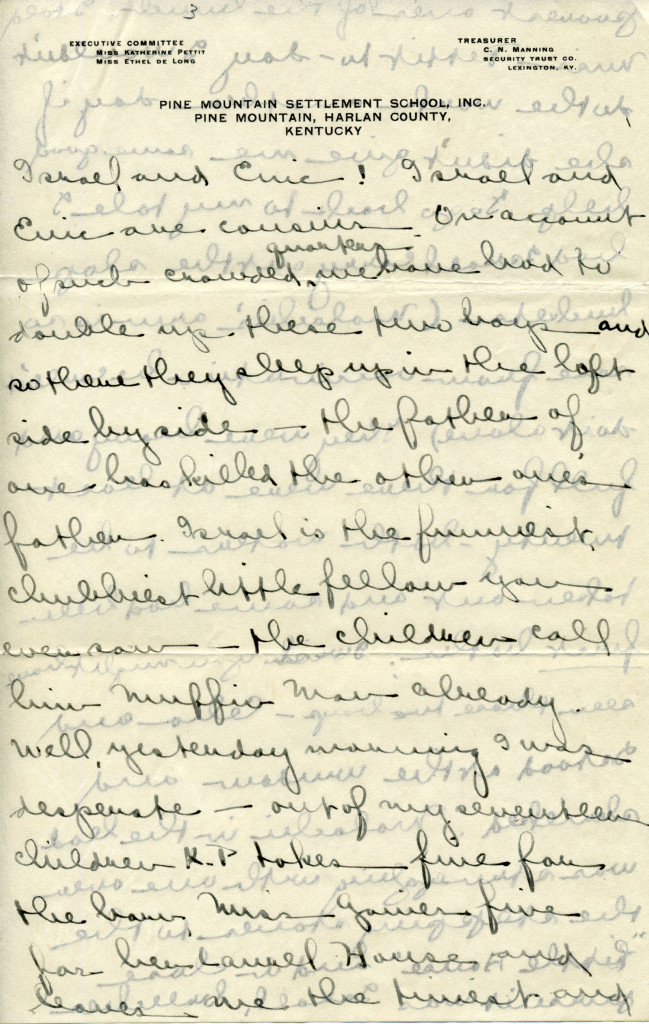 3
EXECUTIVE COMMITTEE
MISS KATHERINE PETTIT
MISS ETHEL DE LONG
TREASURER
C. N. MANNING
SECURITY TRUST CO.
LEXINGTON, KY.
PINE MOUNTAIN SETTLEMENT SCHOOL, INC.
PINE MOUNTAIN, HARLAN COUNTY,
KENTUCKY
Israel and Enic! Israel and
Enic are cousins. On account
of such crowded quarters we have had to
double up these two boys and
so there they sleep up in the loft
side by side — the father of
one has killed the other one's
father. Israel is the funniest,
chubbiest little fellow you
ever saw — the children call
him Muffin Man already.
Well, yesterday morning I was
desperate — out of my seventeen
children K.P takes five for
the barn, Miss Gaines five
for her Laurel House and
leaves me the tiniest and